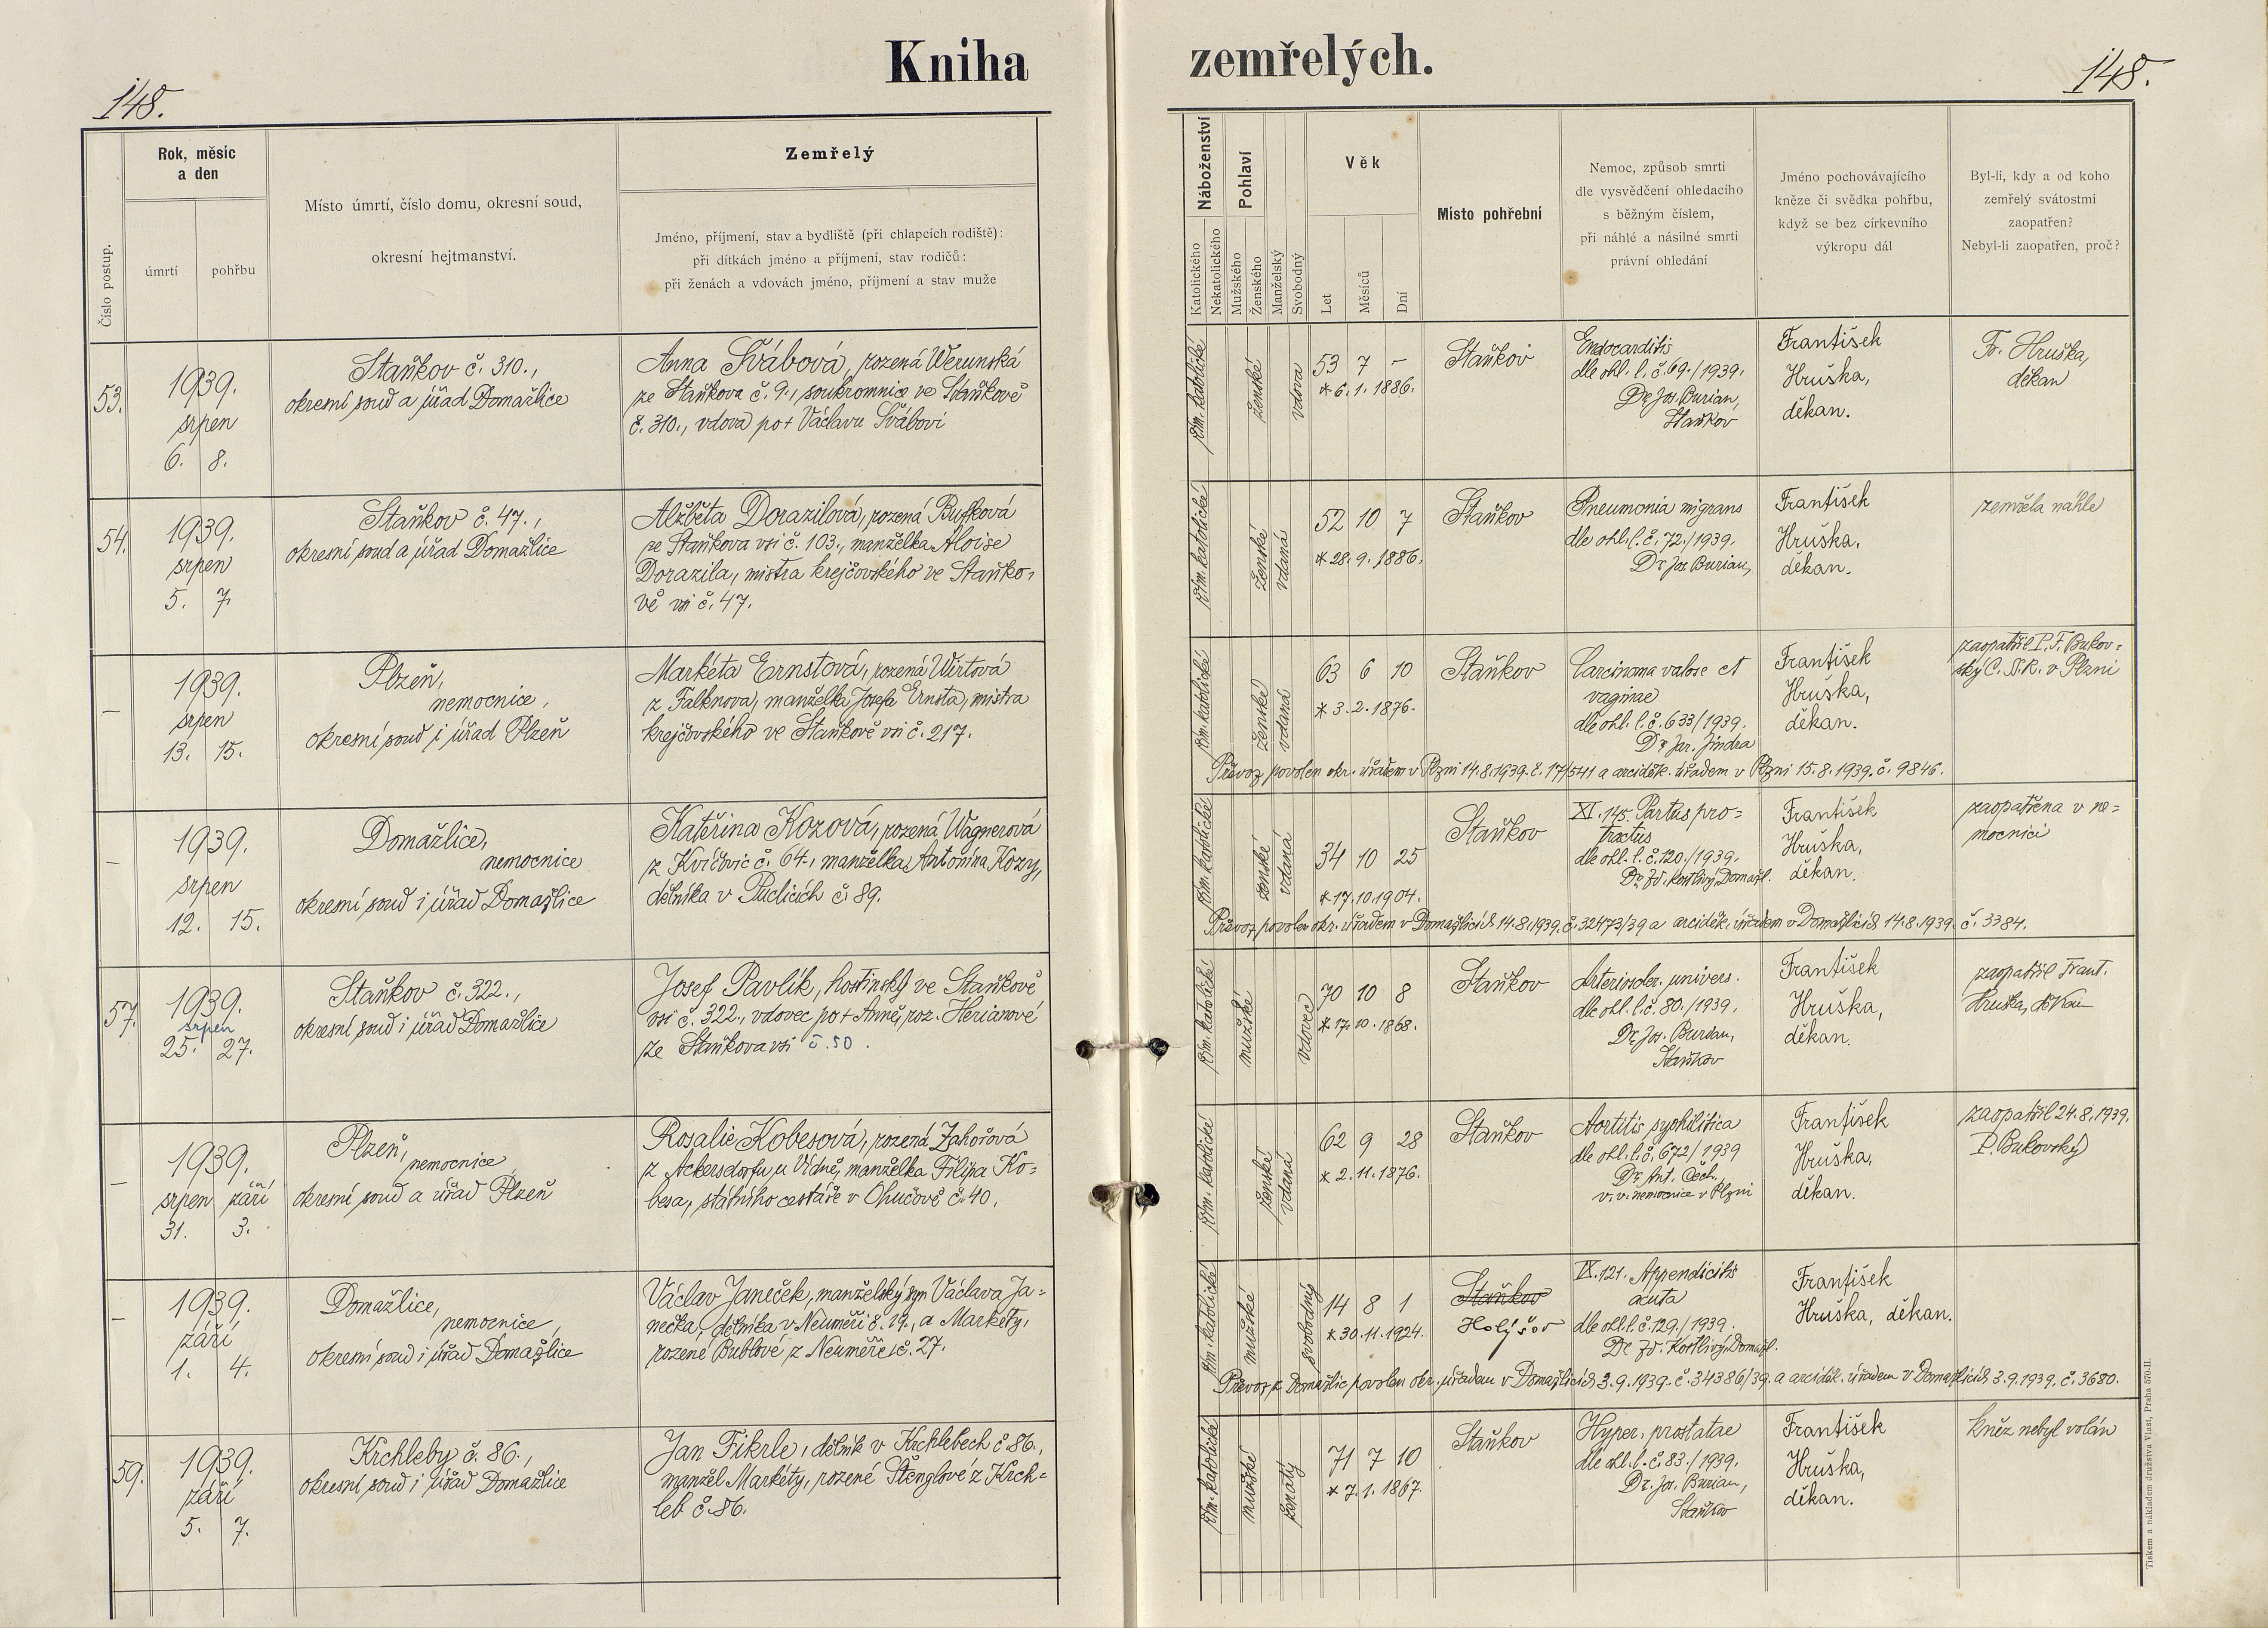 Kniha zemřelých.
148.
148.
Číslo postup.
Rok, měsíc
a den
úmrtí
pohřbu
Místo úmrtí, číslo domu, okresní soud,
okresní hejtmanství.
Zemřelý
Jméno, příjmení, stav a bydliště (při chlapcích rodiště):
při dítkách jméno a příjmení, stav rodičů:
při ženách a vdovách jméno, příjmení a stav muže
Náboženství
Katolického
Nekatolického
Pohlaví
Mužského
Ženského
Manželský
Svobodný
Věk
Let
Měsíců
Dní
Místo pohřební
Nemoc, způsob smrti
dle vysvědčení ohledacího
s běžným číslem,
při náhlé a násilné smrti
právní ohledání
Jméno pochovávajícího
kněze či svědka pohřbu,
když se bez církevního
výkropu dál
Byl-li, kdy a od koho
zemřelý svátostmi
zaopatřen?
Nebyl-li zaopatřen, proč?
53.
1939.
srpen
6. 8.
Staňkov č. 310.,
okresní soud a úřad Domažlice
Anna Švábová, rozená Werunská
ze Staňkova č. 9., soukromnice ve Staňkově
č. 310., vdova po + Václavu Švábovi
řím. katolické
ženské
vdova
53 7 –
* 6. 1. 1886.
Staňkov
Endocarditis
dle ohl. l. č. 69./1939.
Dr. Jos. Burian,
Staňkov
František
Hruška,
děkan.
Fr. Hruška,
děkan
54.
1939.
srpen
5. 7.
Staňkov č. 47.,
okresní soud a úřad Domažlice
Alžběta Dorazilová, rozená Bufková
ze Staňkova vsi č. 103., manželka Aloise
Dorazila, mistra krejčovského ve Staňko-
vě vsi č. 47.
řím. katolické
ženské
vdaná
52 10 7
* 28. 9. 1886.
Staňkov
Pneumonia migrans
dle ohl. l. č. 72./1939.
Dr. Jos. Burian,
František
Hruška,
děkan.
zemřela náhle
–
1939.
srpen
13. 15.
Plzeň,
nemocnice,
okresní soud i úřad Plzeň
Markéta Ernstová, rozená Wirtová
z Falknova, manželka Josefa Ernsta, mistra
krejčovského ve Staňkově vsi č. 217.
řím. katolické
ženské
vdaná
63 6 10
* 3. 2. 1876.
Staňkov
Carcinoma valvae et
vaginae
dle ohl. l. č. 633/1939.
Dr. Jar. Jindra
František
Hruška,
děkan.
zaopatřil P. F. Bukov-
ský C. Ss. R. v Plzni
Převoz povolen okr. úřadem v Plzni 14.8.1939. č. 17/541 a arciděk. úřadem v Plzni 15.8.1939. č. 9846.
–
1939.
srpen
12. 15.
Domažlice,
nemocnice
okresní soud i úřad Domažlice
Kateřina Kozová, rozená Wagnerová
z Kvíčovic č. 64., manželka Antonína Kozy,
dělníka v Puclicích č. 89.
řím. katolické
ženské
vdaná
34 10 25
* 17.10.1904.
Staňkov
XI. 145. Partus pro-
tractus
dle ohl. l. č. 120./1939.
Dr. Zd. Kostlivý, Domažl.
František
Hruška,
děkan.
zaopatřena v ne-
mocnici
Převoz povolen okr. úřadem v Domažlicích 14.8.1939. č. 32473/39 a arciděk. úřadem v Domažlicích 14.8.1939. č. 3384.
57.
1939.
srpen
25. 27.
Staňkov č. 322.,
okresní soud i úřad Domažlice
Josef Pavlík, hostinský ve Staňkově
vsi č. 322., vdovec po + Anně, roz. Herianové
ze Staňkova vsi č. 50.
řím. katolické
mužské
vdovec
70 10 8
* 17. 10. 1868.
Staňkov
Arterioscler. univers.
dle ohl. l. č. 80./1939.
Dr. Jos. Burian,
Staňkov
František
Hruška,
děkan.
zaopatřil Frant.
Hruška, děkan
–
1939.
srpen září
31. 3.
Plzeň, nemocnice,
okresní soud a úřad Plzeň
Rosalie Kobesová, rozená Zahořová
z Ackersdorfu u Vídně, manželka Filipa Ko-
besa, státního cestáře v Ohučově č. 40.
řím. katolické
ženské
vdaná
62 9 28
* 2. 11. 1876.
Staňkov
Aortitis syphilitica
dle ohl. l. č. 672/1939
Dr. Ant. Čech,
v. v. nemocnice v Plzni
František
Hruška,
děkan.
zaopatřil 24.8.1939.
P. Bukovský
–
1939.
září
1. 4.
Domažlice,
nemocnice,
okresní soud i úřad Domažlice
Václav Janeček, manželský syn Václava Ja-
nečka, dělníka v Neuměři č. 19., a Markéty,
rozené Bublové z Neuměře č. 27.
řím. katolické
mužské
svobodný
14 8 1
* 30. 11. 1924.
Staňkov
Holýšov
IX. 121. Appendicitis
acuta
dle ohl. l. č. 129./1939.
Dr. Zd. Kostlivý, Domažl.
František
Hruška, děkan.
Převoz z Domažlic povolen okr. úřadem v Domažlicích 3.9.1939. č. 34386/39. a arciděk. úřadem v Domažlicích 3.9.1939. č. 3680.
59.
1939.
září
5. 7.
Krchleby č. 86.,
okresní soud i úřad Domažlice
Jan Fikrle, dělník v Krchlebech č. 86.,
manžel Markéty, rozené Štenglové z Krch-
leb č. 86.
řím. katolické
mužské
ženatý
71 7 10
* 7. 1. 1867.
Staňkov
Hyper. prostatae
dle ohl. l. č. 83./1939.
Dr. Jos. Burian,
Staňkov
František
Hruška,
děkan.
kněz nebyl volán
Tiskem a nákladem družstva Vlast, Praha 570-II.